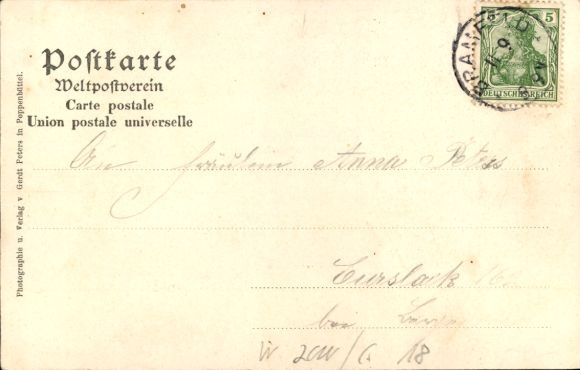 Postkarte
Weltpostverein
Carte postale
Union postale universelle
5
DEUTSCHES REICH
BRAMFELD
An Fräulein Anna Peters
Curslack
bei
18
Photographie u. Verlag v Gerdt Peters in Poppenbüttel.